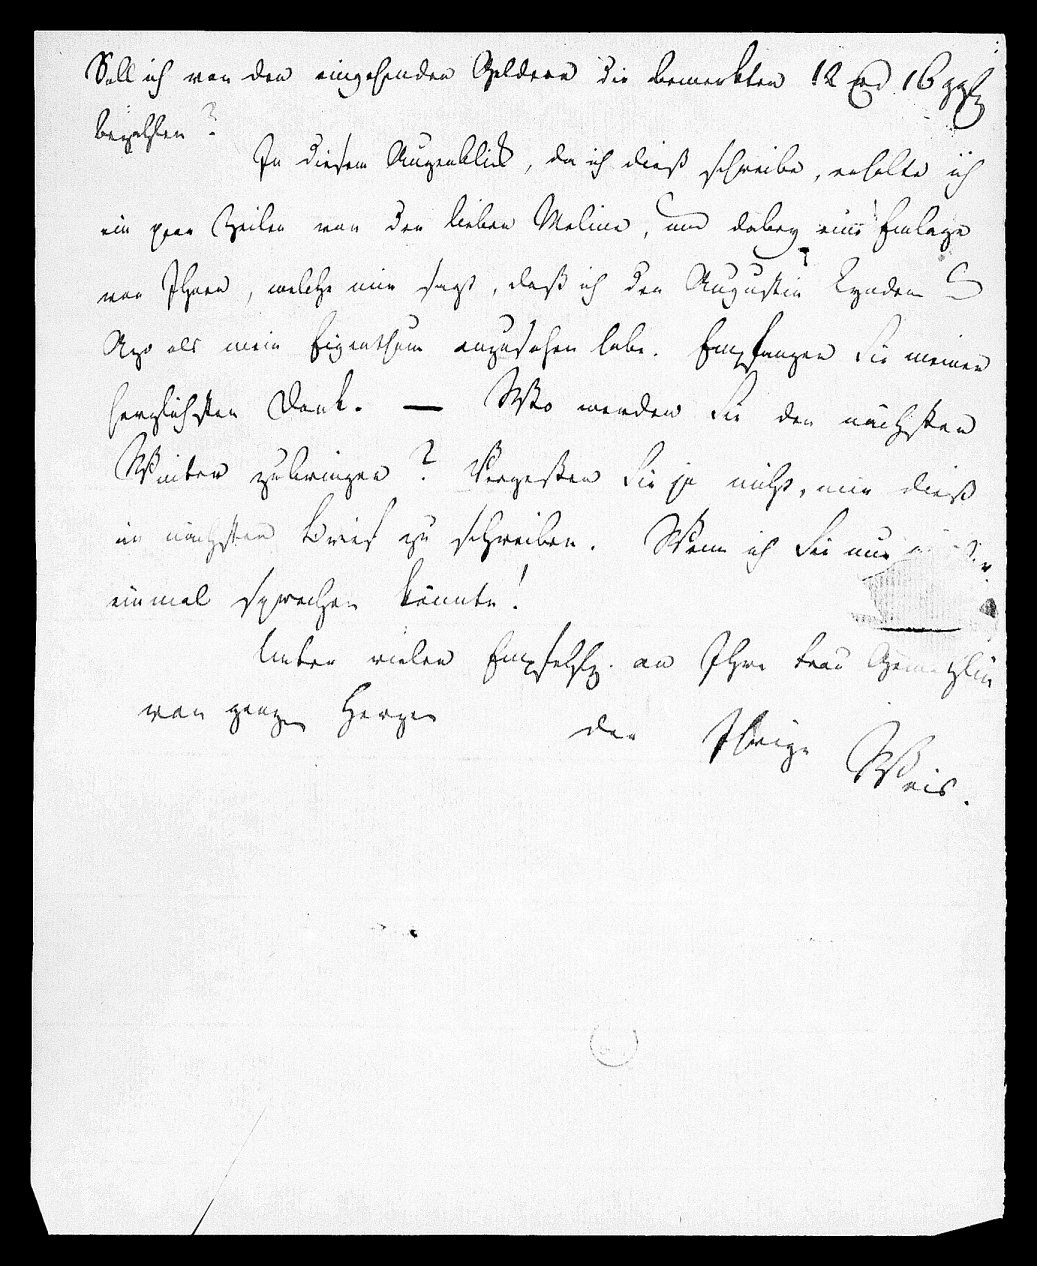 Soll ich von den eingehenden Geldern die bemerkten 12 16 ggl
bezahlen?
In diesem Augenblick, da ich dieß schreibe, erhalte ich
ein paar Zeilen von der lieben Meline, und dabey eine Einlage
von Ihnen, welche mir sagt, daß ich den Augustin
Azo als mein Eigenthum anzusehen habe. Empfangen Sie meinen
herzlichsten Dank. — Wo werden Sie den nächsten
Winter zubringen? Vergessen Sie ja nicht, mir dieß
im nächsten Brief zu schreiben. Wenn ich Sie nur
einmal sprechen könnte!
Unter vielen Empfehlg. an Ihre Frau Gemahlin
von ganzem Herzen der Ihrige Weis.